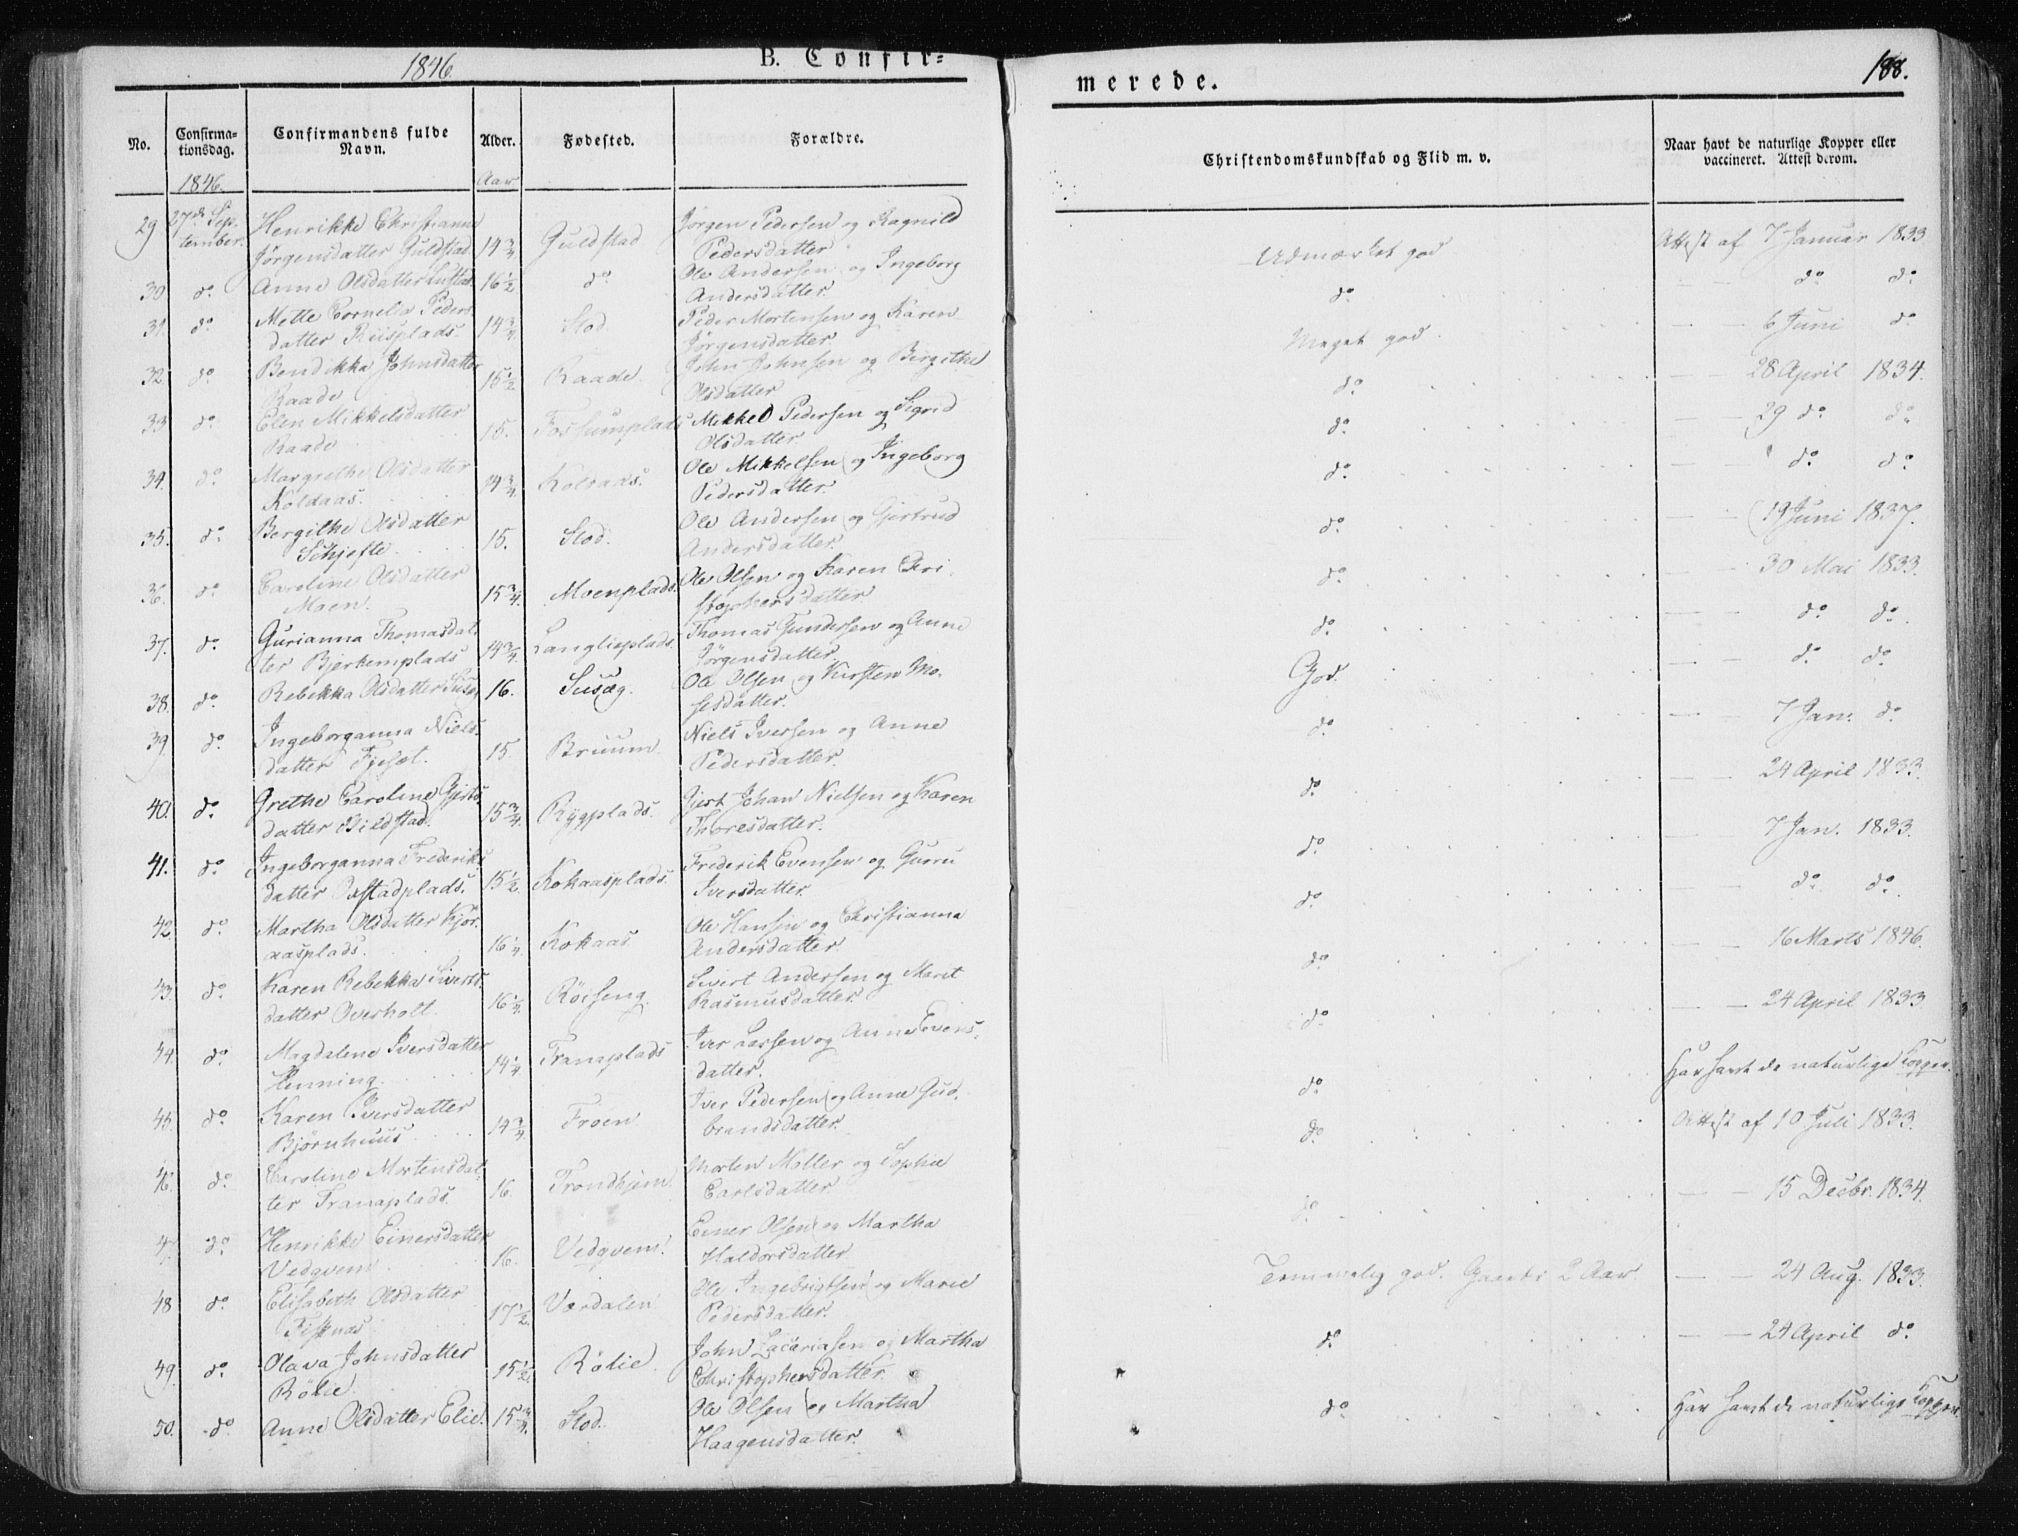 1846.
B. Confir=
merede.
188.
No.
Confirma-
tionsdag.
Confirmandens fulde
Navn.
Alder.
Fødested.
Forældre.
Christendomskundskab og Flid m. v.
Naar havt de naturlige Kopper eller
vaccineret. Attest derom.
1846.
Aar
29 27de Sep- Henrikke Christianna Jørgen Pedersen og Ragnild
tember. Jørgensdatter Guldstad 14 3/4 Guldstad Pedersdatter Udmærket god Attest af 7 Januar 1833
30 do Anne Olsdatter 16 1/2 do Ole Andersen og Ingeborg
Andersdatter. do — — do do
31. do Mette Cornelia Peders 14 3/4 Stod. Peder Mortensen og Karen
datter Riisplads. Jørgensdatter Meget god — — 6 Juni do
32. do Bendikka Johnsdatter 15 1/2 Raade. John Johnsen og Birgithe
Raade Olsdatter do — — 28 April 1834.
33 do Elen Mikkelsdatter 15. Fossumplads Mikkel Pedersen og Sigrid
Raade Olsdatter. do — — 29 do do
34. do Margrethe Olsdatter 14 3/4 Kolaas. Ole Mikkelsen og Ingeborg
Koldaas. Pedersdatter. do — — do do
35. do Bergithe Olsdatter 15. Stod. Ole Andersen og Gjertrud
Schjefte. Andersdatter. do — — 19 Juni 1837.
36. do Caroline Olsdatter 15 3/4 Moenplads. Ole Olsen og Karen Chri-
Moen. stophersdatter do — — 30 Mai 1833.
37. do Gurianna Thomasdat- 14 3/4 Langlieplads. Thomas Gundersen og Anne
ter Bjerkemplads Jørgensdatter. do — — do do
38. do Rebekka Olsdatter Susæg 16. Susæg. Ole Olsen og Kirsten Mo-
sesdatter. God. — — do do
39. do Ingeborganna Niels- 15. Bruum. Niels Iversen og Anne
datter Fjesæt. Pedersdatter. do — — 7 Jan. do
40. do Grethe Caroline Gjerts- 15 3/4 Rygplads. Gjert Johan Nielsen og Karen
datter Bildstad. Thoresdatter. do — — 24 April 1833.
41. do Ingeborganna Frederiks- 15 1/2 Kokaasplads. Frederik Evensen og Guru
datter Iversdatter do — — 7 Jan. 1833.
42. do Martha Olsdatter Kjør- 16 1/4 Kokaas Ole Hansen og Christianna
aasplads. Andersdatter. do — — do do
43. do Karen Rebekka Siverts- 16 1/4 Røiseng. Sivert Andersen og Marit
datter Overholt. Rasmusdatter do — — 16 Marts 1846.
44. do Magdalene Iversdatter 14 1/4 Tranaplads Iver Larsen og Anne Evens-
Henning. datter. do — — 24 April 1833
45. do Karen Iversdatter 14 3/4 Froen Iver Pedersen og Anne Gud-
Bjørnhuus. brandsdatter. do Har havt de naturlige Kopper.
46. do Caroline Mortensdat- 16. Trondhjem. Morten Møller og Sophie
ter Tranaplads. Carlsdatter do Attest af 10 Juli 1833.
47 do Henrikke Einersdatter 16. Vedqvem. Einer Olsen og Martha
Vedqvem. Haldorsdatter do — — 15 Decbr. 1834.
48 do Elisabeth Olsdatter 17 1/2 Værdalen Ole Ingebrigtsen og Marie
Fisknæs Pedersdatter. Temmelig god. Gaaet 2 Aar. — — 24 Aug. 1833.
49. do Olava Johnsdatter 15 1/2 Rølie. John Zacariasen og Martha
Rølie. Christophersdatter do — — 24 April do
50. do Anne Olsdatter Elie. 15 3/4 Stod. Ole Olsen og Martha
Haagensdatter. do Har havt de naturlige Kopper.